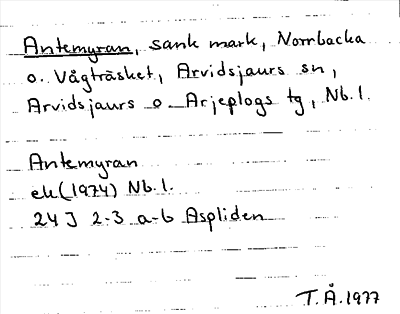 Antemyran, sank mark, Norrbacka
o. Vågträsket, Arvidsjaurs sn,
Arvidsjaurs o. Arjeplogs tg, Nb.l.
Antemyran
ek (1974) Nb.l.
24 J 2-3 a-b Aspliden
T.Å.1977